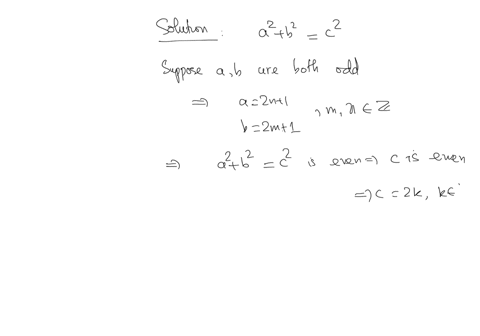 Solution: a² + b² = c²
Suppose a, b are both odd
⇒ a = 2n+1
, m, n ∈ ℤ
b = 2m+1
⇒ a² + b² = c² is even ⇒ c is even
⇒ c = 2k, k ∈